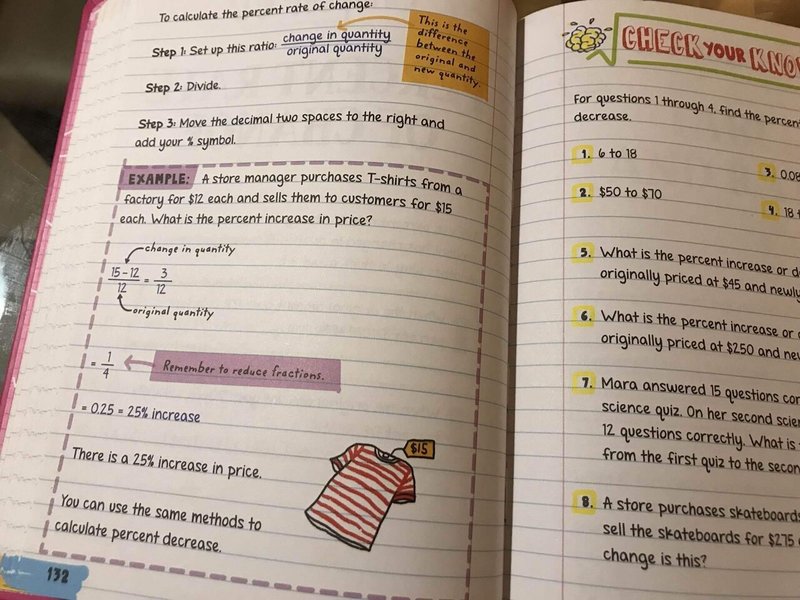 To calculate the percent rate of change:
Step 1: Set up this ratio: change in quantity
original quantity
This is the
difference
between the
original and
new quantity.
Step 2: Divide.
Step 3: Move the decimal two spaces to the right and
add your % symbol.
EXAMPLE: A store manager purchases T-shirts from a
factory for $12 each and sells them to customers for $15
each. What is the percent increase in price?
change in quantity
15 – 12 / 12 = 3 / 12
original quantity
= 1 / 4
Remember to reduce fractions.
= 0.25 = 25% increase
There is a 25% increase in price.
$15
You can use the same methods to
calculate percent decrease.
132
CHECK YOUR
For questions 1 through 4, find the percent
decrease.
1. 6 to 18
2. $50 to $70
3. 0.08
4. 18
5. What is the percent increase or
originally priced at $45 and newly
6. What is the percent increase or
originally priced at $250 and
7. Mara answered 15 questions
science quiz. On her second
12 questions correctly. What is
from the first quiz to the
8. A store purchases skateboards
sell the skateboards for $275
change is this?